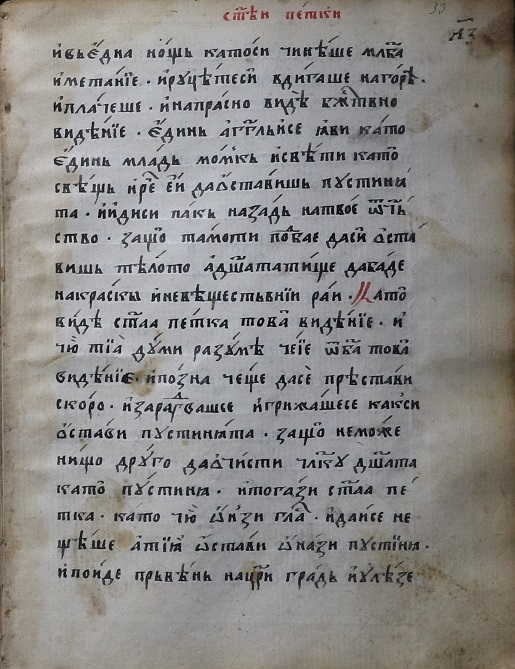 ст҃ѣи пе́тки
33
н҃з
и҆въе҆́дна но́щь катоси чинѣ́ше мл҃ба
и҆метанїе . и҆рꙋцѣ́теси вди́гаше нагорѣ̀ .
и҆пла́чеше . и҆напра́сно видѐ бж҃твно
виде́нїе . е҆ди́нь а҆гг҃лъи҆се ꙗ҆ви като
е҆ди́нь мла́дь момъ́кь и҆све́ти като̀
свѣ́щь и҆ рⷱ҇е е҆й даѡ҆ста́вишь пꙋсти́нꙗ
та . и҆и҆́диси па́кь наза́дь на твоѐ ѿчⷭ҇ь
ство . защо̀ та́моти по́бае да си ѡ҆ста́
вишь тѣ́лото а҆дш҃атати́ще да ба́де
на кра́скы и҆невѣще́стьвнїи ра́и . Като̀
ви́дѣ ст҃аа пе́тка това̀ виде́нїе . и҆
чю̀ тїа̀ дꙋ́ми разꙋмѣ̀ че́їе ѿ бг҃а това̀
виде́нїе . и҆позна̀ че́ще дасѐ прѣста́ви
ско́ро . и҆зара́двашесе и҆гри́жашесе ка́кси
ѡ҆ста́ви пꙋсти́нꙗта . защо̀ не мо́же
ни́що дрꙋ́го даѡ҆чи́сти чл҃кꙋ дш҃ата
като̀ пꙋсти́нꙗ . и҆тога́зи ст҃аа пе́
тка . като чю̀ ѡ҆́нзи гла́ⷭ . и҆да и҆се не
щѣ́ше а҆тїа̀ ѡ҆ста́ви ѡ҆на́зи пꙋсти́нꙗ .
и҆по́йде пръве́нь на цр҃и гра́дь и҆ꙋлѣ́зе